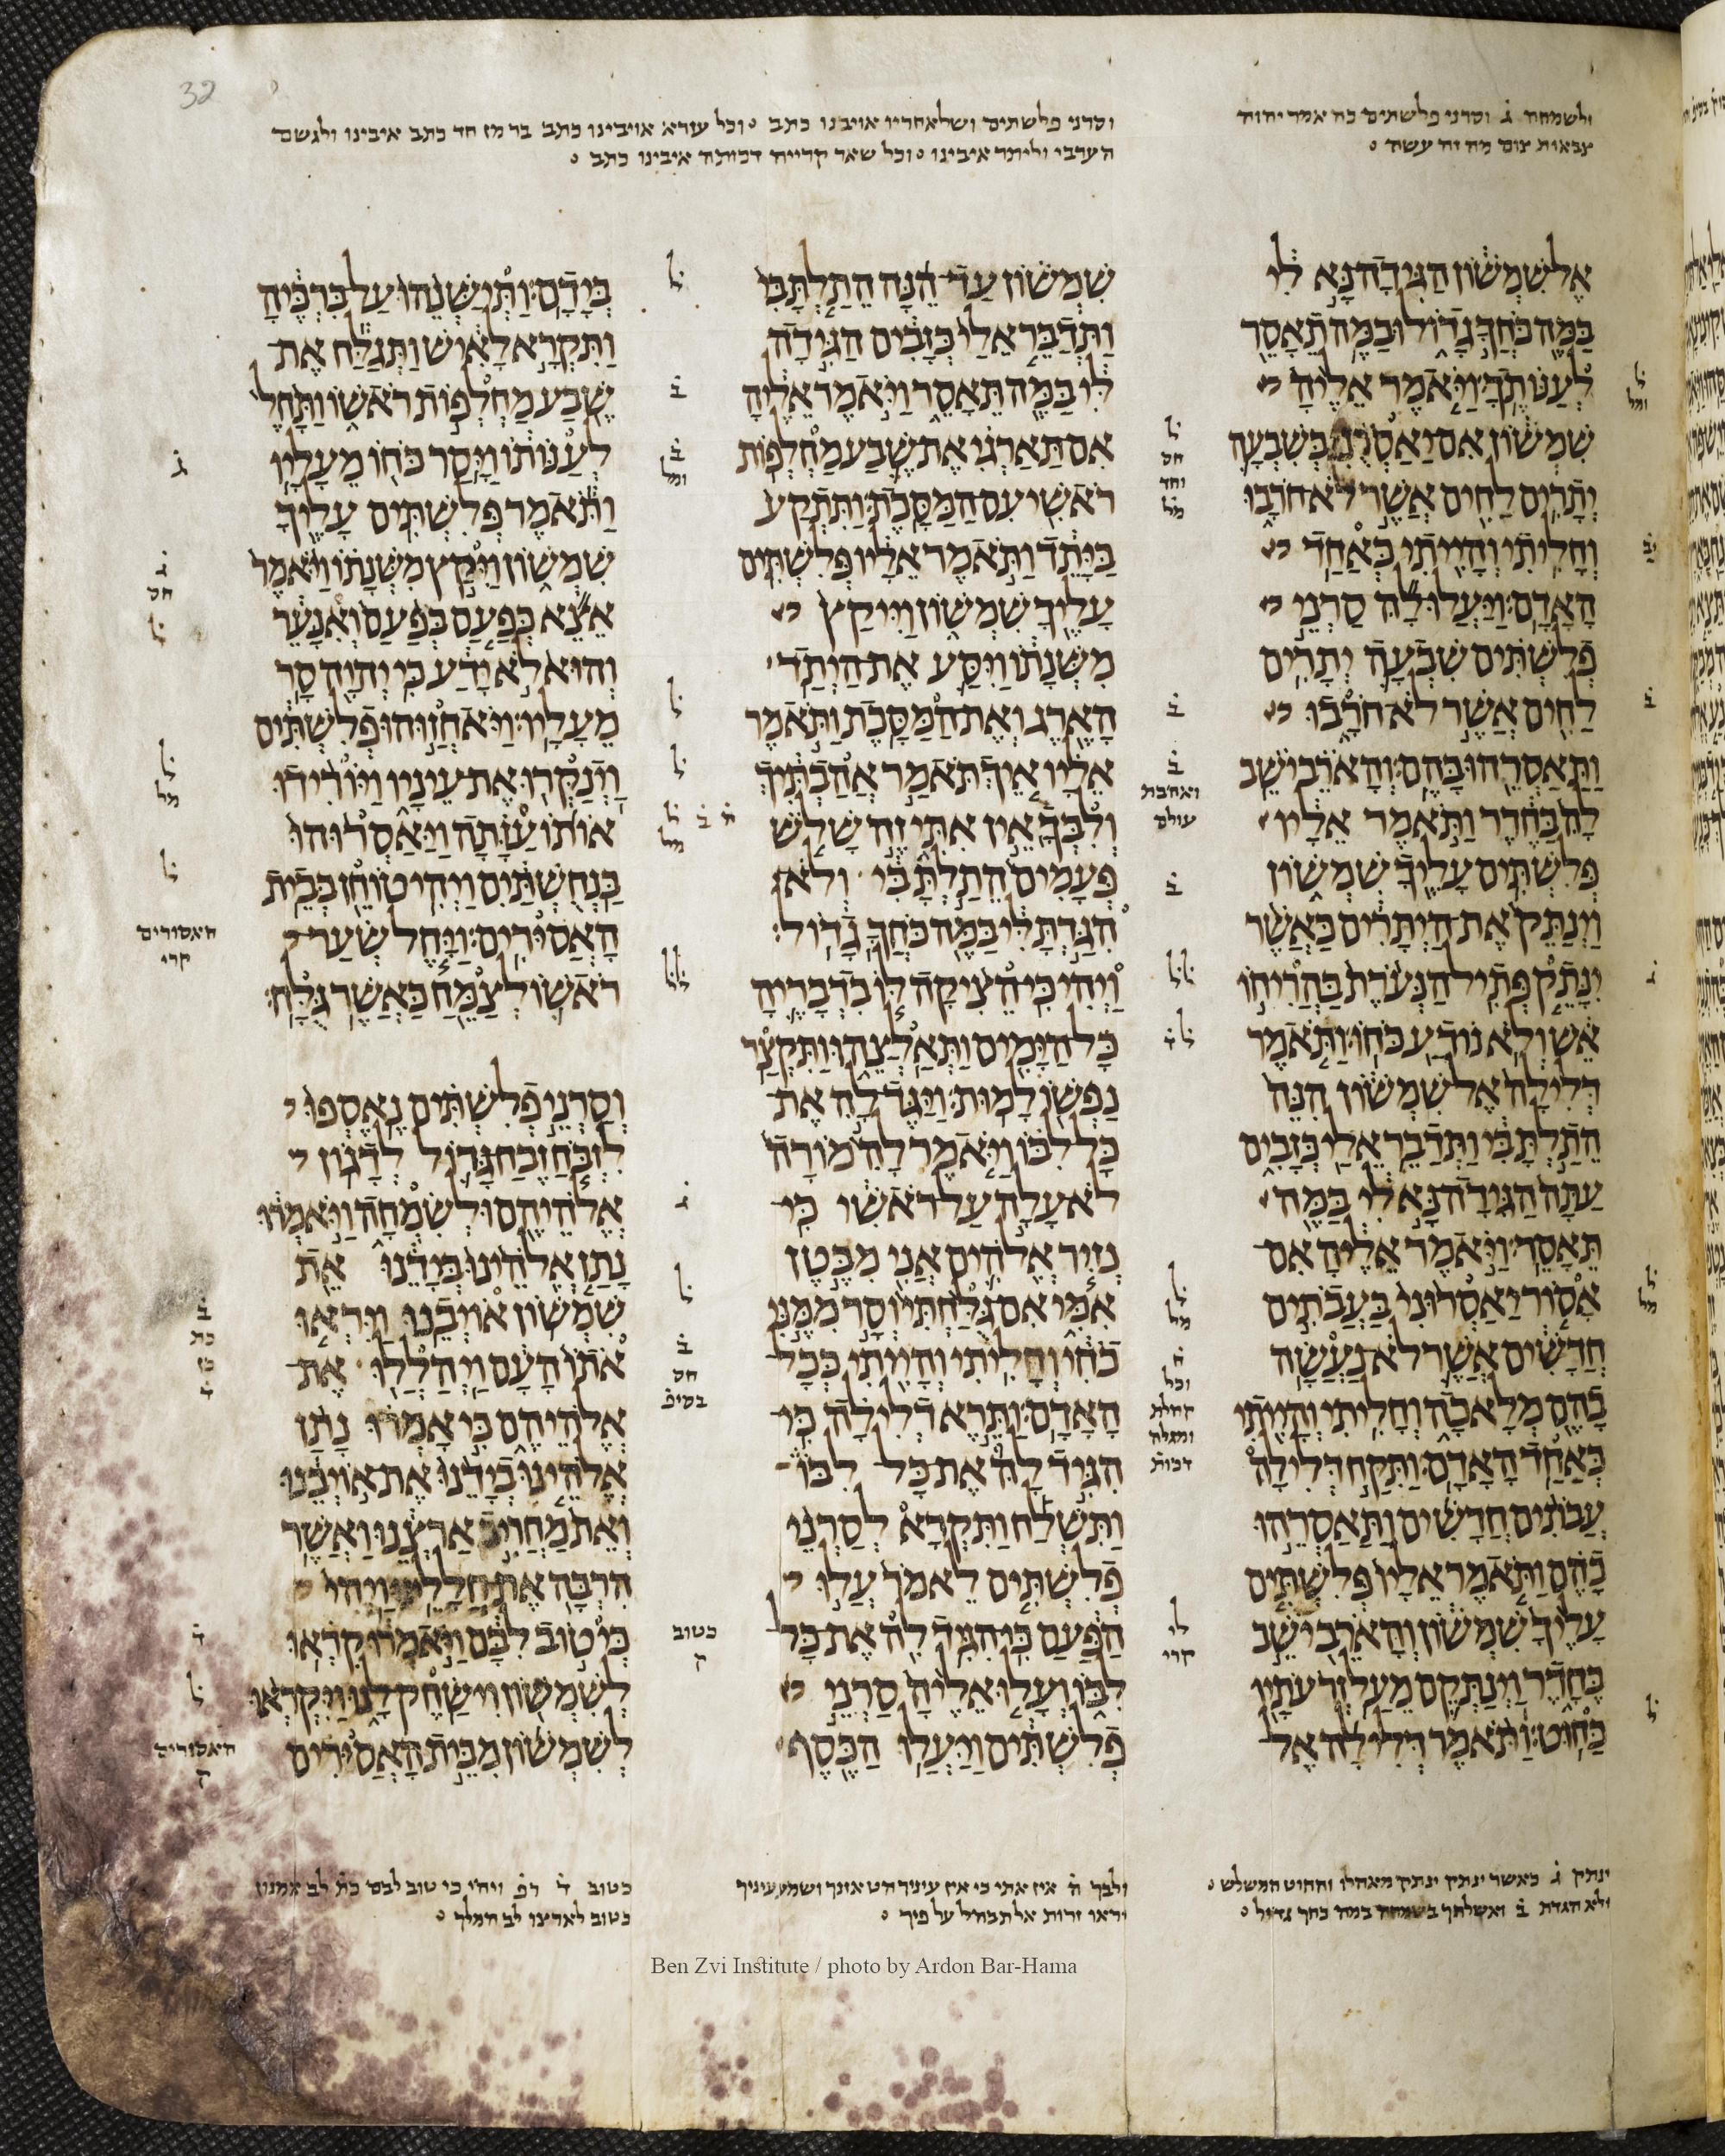 32
ולשמחה ג וסרני פלשתים כה אמר יהוה
צבאות צום מה זה עשה
וסרני פלשתים ושלאחריו אויבנו כתב וכל עזרא אויבינו כתב בר מז חד כתב איבינו ולגשם
הערבי וליתר איבינו וכל שאר קרייה דכותה איבינו כתב
אֶל שִׁמְשׁוֹן הַגִּידָה נָּא לִי
בַּמֶּה כֹּחֲךָ גָדוֹל וּבַמֶּה תֵאָסֵר
לְעַנּוֹתֶךָ׃ וַיֹּאמֶר אֵלֶיהָ
שִׁמְשׁוֹן אִם יַאַסְרֻנִי בְּשִׁבְעָה
יְתָרִים לַחִים אֲשֶׁר לֹא חֹרָבוּ
וְחָלִיתִי וְהָיִיתִי כְּאַחַד
הָאָדָם׃ וַיַּעֲלוּ לָהּ סַרְנֵי
פְלִשְׁתִּים שִׁבְעָה יְתָרִים
לַחִים אֲשֶׁר לֹא חֹרָבוּ
וַתַּאַסְרֵהוּ בָּהֶם׃ וְהָאֹרֵב יֹשֵׁב
לָהּ בַּחֶדֶר וַתֹּאמֶר אֵלָיו
פְּלִשְׁתִּים עָלֶיךָ שִׁמְשׁוֹן
וַיְנַתֵּק אֶת הַיְתָרִים כַּאֲשֶׁר
יִנָּתֵק פְּתִיל הַנְּעֹרֶת בַּהֲרִיחוֹ
אֵשׁ וְלֹא נוֹדַע כֹּחוֹ׃ וַתֹּאמֶר
דְּלִילָה אֶל שִׁמְשׁוֹן הִנֵּה
הֵתַלְתָּ בִּי וַתְּדַבֵּר אֵלַי כְּזָבִים
עַתָּה הַגִּידָה נָּא לִי בַּמֶּה
תֵּאָסֵר׃ וַיֹּאמֶר אֵלֶיהָ אִם
אָסוֹר יַאַסְרוּנִי בַּעֲבֹתִים
חֲדָשִׁים אֲשֶׁר לֹא נַעֲשָׂה
בָהֶם מְלָאכָה וְחָלִיתִי וְהָיִיתִי
כְּאַחַד הָאָדָם׃ וַתִּקַּח דְּלִילָה
עֲבֹתִים חֲדָשִׁים וַתַּאַסְרֵהוּ
בָהֶם וַתֹּאמֶר אֵלָיו פְּלִשְׁתִּים
עָלֶיךָ שִׁמְשׁוֹן וְהָאֹרֵב יֹשֵׁב
בֶּחָדֶר וַיְנַתְּקֵם מֵעַל זְרֹעֹתָיו
כַּחוּט׃ וַתֹּאמֶר דְּלִילָה אֶל
שִׁמְשׁוֹן עַד הֵנָּה הֵתַלְתָּ בִּי
וַתְּדַבֵּר אֵלַי כְּזָבִים הַגִּידָה
לִּי בַּמֶּה תֵּאָסֵר וַיֹּאמֶר אֵלֶיהָ
אִם תַּאַרְגִי אֶת שֶׁבַע מַחְלְפוֹת
רֹאשִׁי עִם הַמַּסָּכֶת׃ וַתִּתְקַע
בַּיָּתֵד וַתֹּאמֶר אֵלָיו פְּלִשְׁתִּים
עָלֶיךָ שִׁמְשׁוֹן וַיִּיקַץ
מִשְּׁנָתוֹ וַיִּסַּע אֶת הַיְתַד
הָאֶרֶג וְאֶת הַמַּסָּכֶת׃ וַתֹּאמֶר
אֵלָיו אֵיךְ תֹּאמַר אֲהַבְתִּיךְ
וְלִבְּךָ אֵין אִתִּי זֶה שָׁלֹשׁ
פְּעָמִים הֵתַלְתָּ בִּי וְלֹא
הִגַּדְתָּ לִּי בַּמֶּה כֹּחֲךָ גָדוֹל׃
וַיְהִי כִּי הֵצִיקָה לּוֹ בִדְבָרֶיהָ
כָּל הַיָּמִים וַתְּאַלְצֵהוּ וַתִּקְצַר
נַפְשׁוֹ לָמוּת׃ וַיַּגֶּד לָהּ אֶת
כָּל לִבּוֹ וַיֹּאמֶר לָהּ מוֹרָה
לֹא עָלָה עַל רֹאשִׁי כִּי
נְזִיר אֱלֹהִים אֲנִי מִבֶּטֶן
אִמִּי אִם גֻּלַּחְתִּי וְסָר מִמֶּנִּי
כֹחִי וְחָלִיתִי וְהָיִיתִי כְּכָל
הָאָדָם׃ וַתֵּרֶא דְלִילָה כִּי
הִגִּיד לָהּ אֶת כָּל לִבּוֹ
וַתִּשְׁלַח וַתִּקְרָא לְסַרְנֵי
פְלִשְׁתִּים לֵאמֹר עֲלוּ
הַפַּעַם כִּי הִגִּיד לָהּ אֶת כָּל
לִבּוֹ וְעָלוּ אֵלֶיהָ סַרְנֵי
פְלִשְׁתִּים וַיַּעֲלוּ הַכֶּסֶף
בְּיָדָם׃ וַתְּיַשְּׁנֵהוּ עַל בִּרְכֶּיהָ
וַתִּקְרָא לָאִישׁ וַתְּגַלַּח אֶת
שֶׁבַע מַחְלְפוֹת רֹאשׁוֹ וַתָּחֶל
לְעַנּוֹתוֹ וַיָּסַר כֹּחוֹ מֵעָלָיו
וַתֹּאמֶר פְּלִשְׁתִּים עָלֶיךָ
שִׁמְשׁוֹן וַיִּקַץ מִשְּׁנָתוֹ וַיֹּאמֶר
אֵצֵא כְּפַעַם בְּפַעַם וְאִנָּעֵר
וְהוּא לֹא יָדַע כִּי יְהוָה סָר
מֵעָלָיו׃ וַיֹּאחֲזוּהוּ פְלִשְׁתִּים
וַיְנַקְּרוּ אֶת עֵינָיו וַיּוֹרִידוּ
אוֹתוֹ עַזָּתָה וַיַּאַסְרוּהוּ
בַּנְחֻשְׁתַּיִם וַיְהִי טוֹחֵן בְּבֵית
הָאֲסוּרִים׃ וַיָּחֶל שְׂעַר
רֹאשׁוֹ לְצַמֵּחַ כַּאֲשֶׁר גֻּלָּח׃
וְסַרְנֵי פְלִשְׁתִּים נֶאֶסְפוּ
לִזְבֹּחַ זֶבַח גָּדוֹל לְדָגוֹן
אֱלֹהֵיהֶם וּלְשִׂמְחָה וַיֹּאמְרוּ
נָתַן אֱלֹהֵינוּ בְּיָדֵנוּ אֵת
שִׁמְשׁוֹן אוֹיְבֵנוּ׃ וַיִּרְאוּ
אֹתוֹ הָעָם וַיְהַלְלוּ אֶת
אֱלֹהֵיהֶם כִּי אָמְרוּ נָתַן
אֱלֹהֵינוּ בְיָדֵנוּ אֶת אוֹיְבֵנוּ
וְאֵת מַחֲרִיב אַרְצֵנוּ וַאֲשֶׁר
הִרְבָּה אֶת חֲלָלֵינוּ׃ וַיְהִי
כְּטוֹב לִבָּם וַיֹּאמְרוּ קִרְאוּ
לְשִׁמְשׁוֹן וִישַׂחֶק לָנוּ וַיִּקְרְאוּ
לְשִׁמְשׁוֹן מִבֵּית הָאֲסוּרִים
ינתק ג כאשר ינתק ינתק מאהלו והחוט המשלש
ולא הגדת ב ואשלחך בשמחה במה כחך גדול
ולבך ה אין אתי כי אין עיניך הט אזנך ושמע עיניך
יראו זרות אל תבהל על פיך
כטוב ד ויהי כי טוב לבם כת לב אמנון
כטוב לארצו לב המלך
Ben Zvi Institute / photo by Ardon Bar-Hama